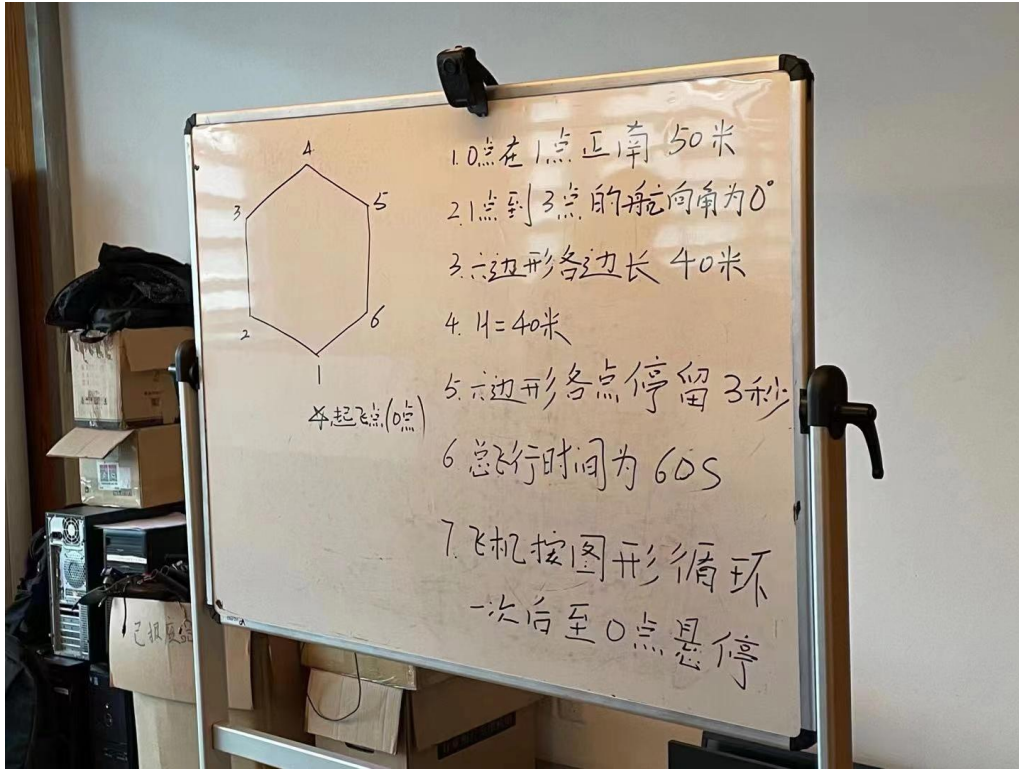 4
3
5
2
6
1
起飞点(0点)
1. 0点在1点正南 50米
2. 1点到3点的航向角为0°
3. 六边形各边长 40米
4. H=40米
5. 六边形各点停留3秒
6 总飞行时间为 60S
7. 飞机按图形循环
一次后至0点悬停